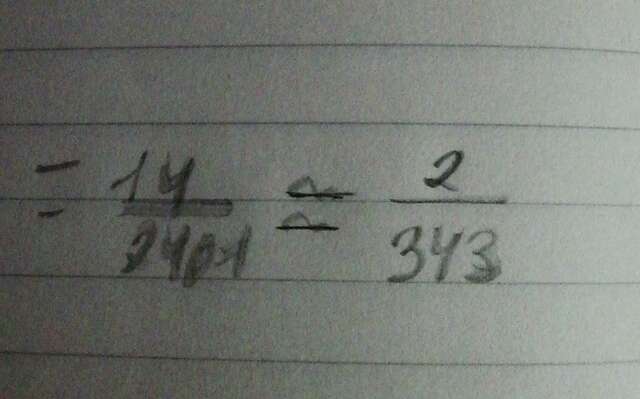 = 14/2401 = 2/343